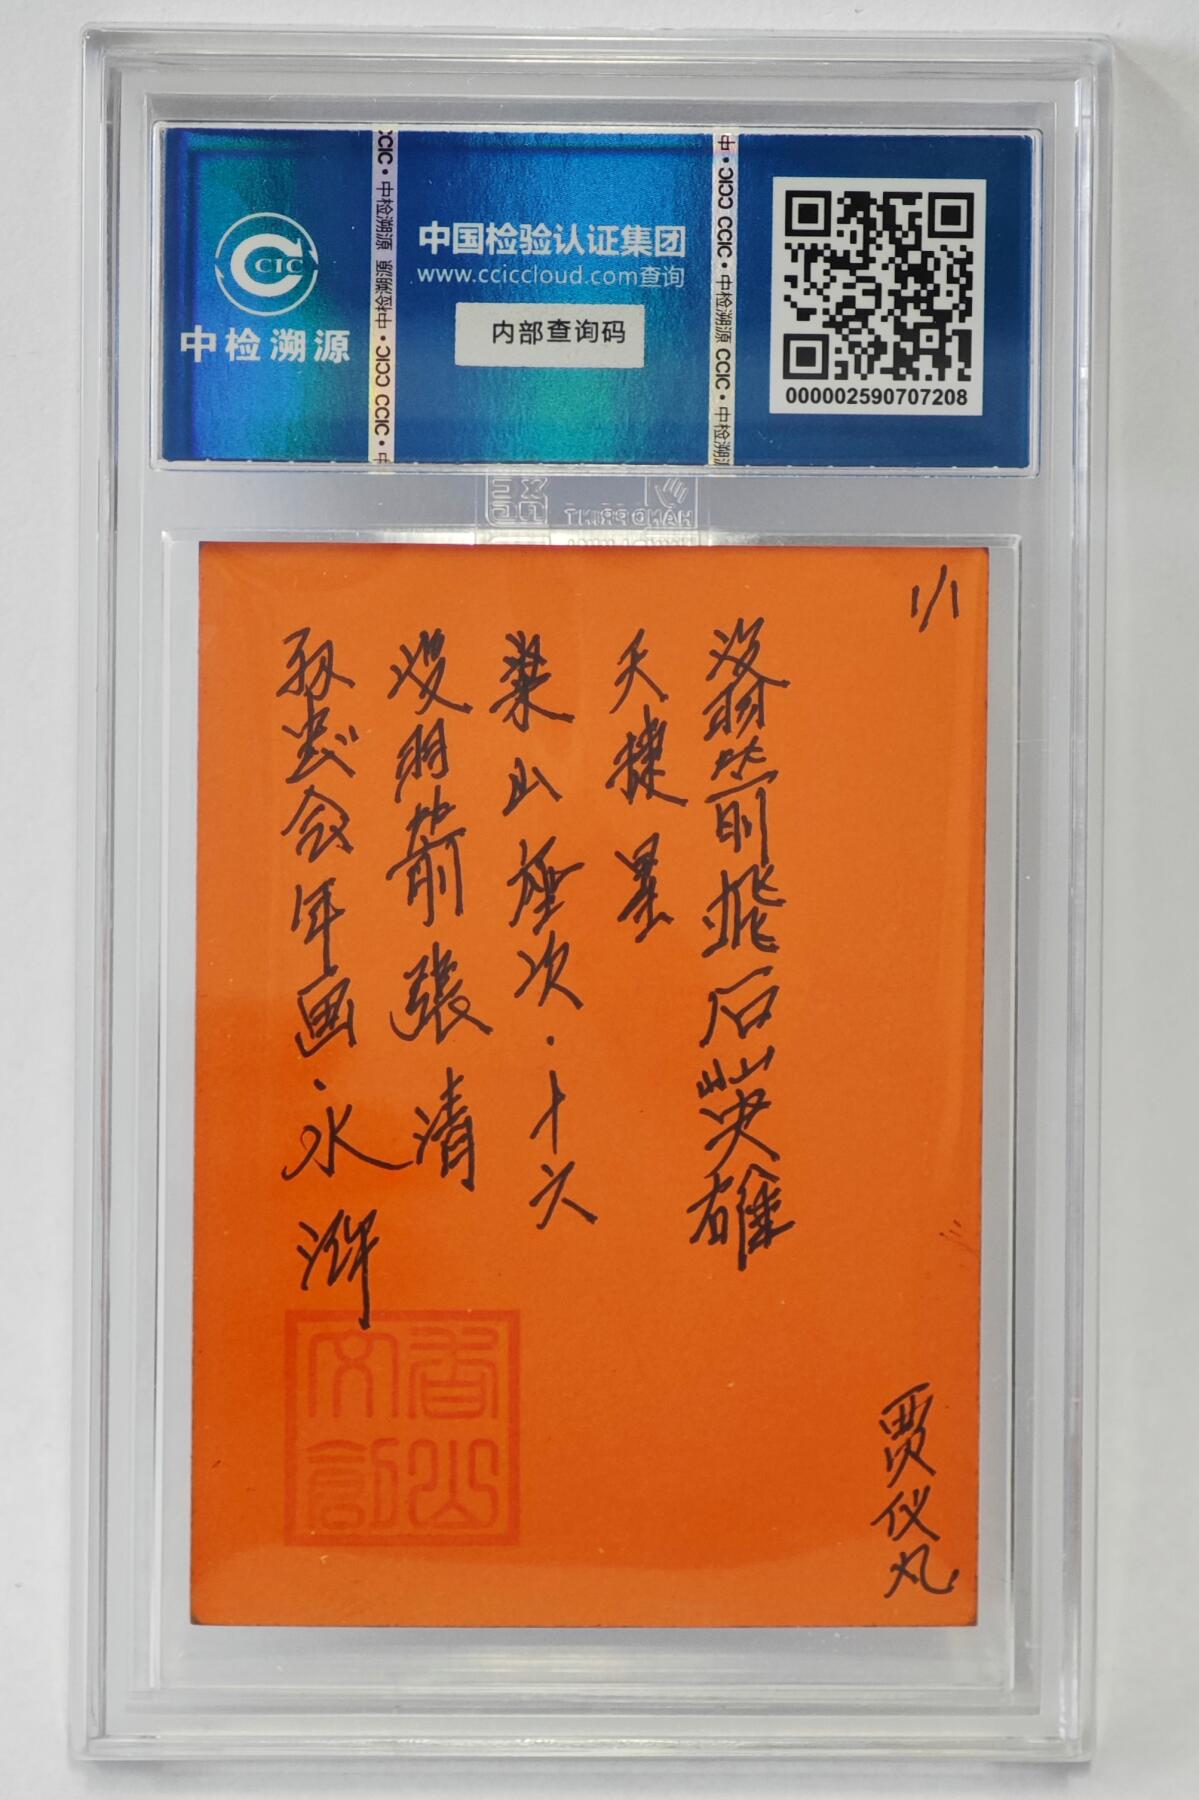 CCIC
中检溯源
中国检验认证集团
www.cciccloud.com查询
内部查询码
000002590707208
CCIC・中检溯源 中检溯源・CCIC CCIC・中
中・CCIC CCIC・中检溯源 CCIC・中检溯源
HAND PRINT
1/1
没羽箭飛石英雄
天捷星
梁山座次·十六
没羽箭張清
孙忠会年画·水浒
贾仪丸
香山
文創